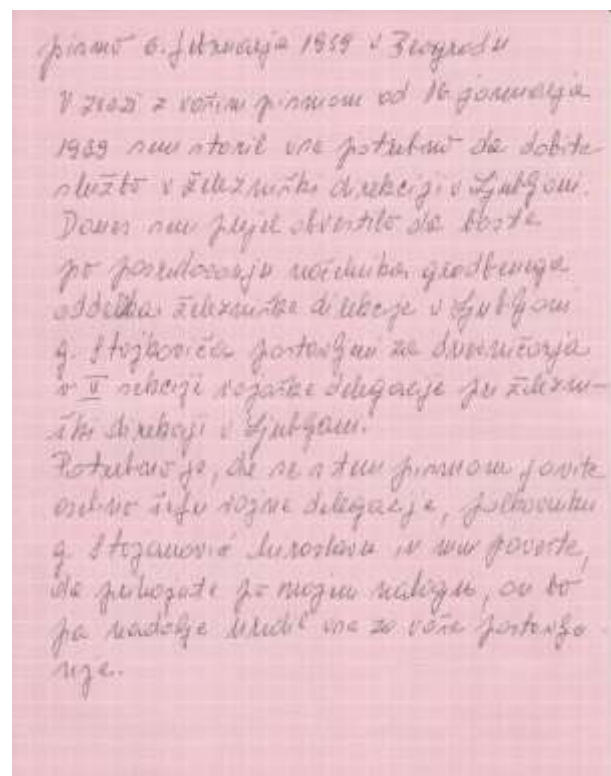 pismo 6. februarja 1939 v Beogradu
V zvezi z vašim pismom od 16 januarja
1939 sem storil vse potrebno da dobite
službo v železniški direkciji v Ljubljani.
Danes sem prejel obvestilo da boste
po posredovanju načelnika gradbenega
oddelka železniške direkcije v Ljubljani
g. Stojkoviča postavljeni za dnevničarja
v V sekciji vojaške delegacije pri železni-
ški direkciji v Ljubljani.
Potrebno je, da se s tem pismom javite
osebno šefu vojne delegacije, polkovniku
g. Stojanović Miroslavu in mu poveste,
da prihajate po mojem nalogu, on bo
pa nadalje uredil vse za vaše postavlja-
nje.